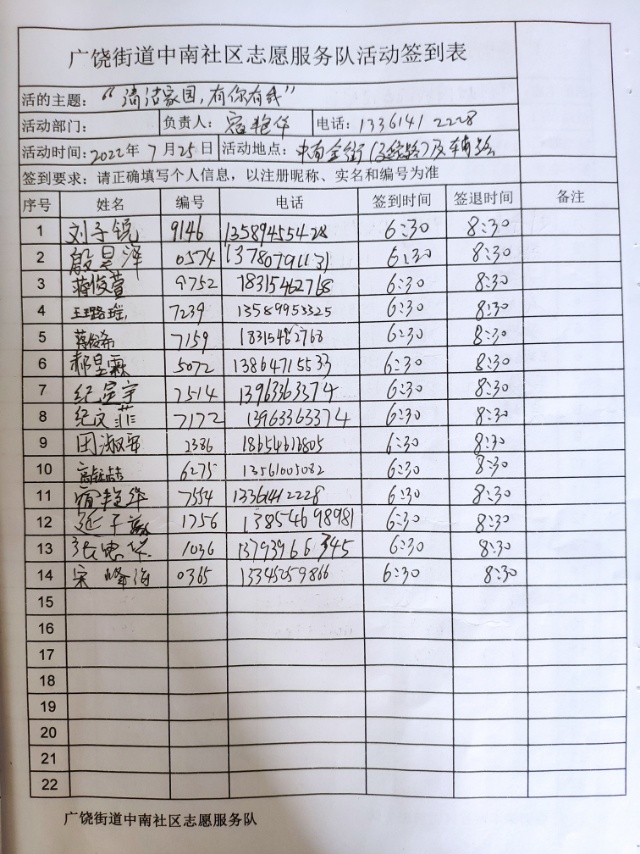 广饶街道中南社区志愿服务队活动签到表
活的主题：“清洁家园，有你有我”
活动部门： 负责人： 电话：13361412228
活动时间：2022年7月25日 活动地点：中南全街
签到要求：请正确填写个人信息，以注册昵称、实名和编号为准
序号 姓名 编号 电话 签到时间 签退时间 备注
1 刘子锐 9146 13589455428 6:30 8:30
2 殷昊泽 0574 13780791131 6:30 8:30
3 蒋俊萱 9752 18315462768 6:30 8:30
4 王璐瑶 7239 13589953325 6:30 8:30
5 7159 18315462768 6:30 8:30
6 郝星霖 5072 13864715533 6:30 8:30
7 纪宣宇 7514 13963363374 6:30 8:30
8 纪文菲 7172 13963363374 6:30 8:30
9 田淑军 2336 18654612805 6:30 8:30
10 6275 13561005032 6:30 8:30
11 7554 13361412228 6:30 8:30
12 1756 13854698981 6:30 8:30
13 1036 13793966345 6:30 8:30
14 宋峰海 0365 13345259866 6:30 8:30
15
16
17
18
19
20
21
22
广饶街道中南社区志愿服务队